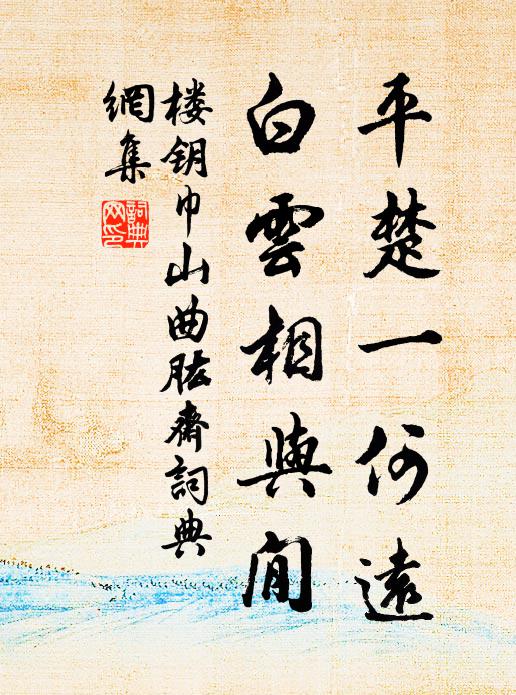 平楚一何遠
白雲相與閒
楼钥巾山曲肱齋詞典
網集
詞典
网印